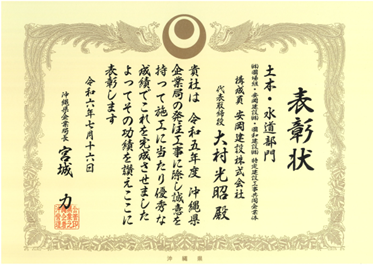 表彰状
土木・水道部門
構成員 安岡建設株式会社
代表取締役 大村光昭 殿
貴社は 令和五年度 沖縄県
企業局の発注工事に際し誠意を
持って施工に当たり優秀な
成績でこれを完成させました
よってその功績を讃えここに
表彰します
令和六年七月十六日
沖縄県企業局長 宮城 力
沖縄県